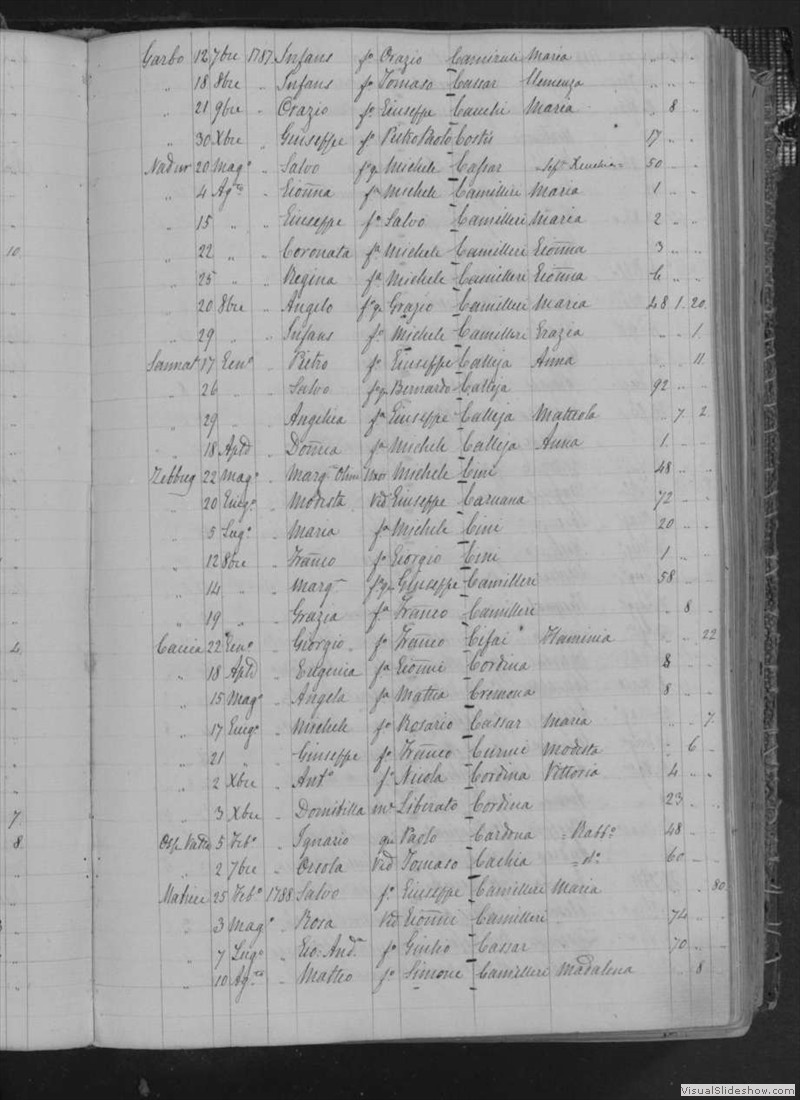 Garbo 12 7bre 1787 Infans fo Orazio Camiruli Maria " "
" 18 8bre " Infans fo Tomaso Cassar Clemenza " "
" 21 9bre " Orazio fo Giuseppe Cauchi Maria " 8 "
" 30 Xbre " Giuseppe fo Pietro Paolo 17 " "
Nadur 20 Mago " Salvo Michele Cassar 50 " "
" 4 Agto " Gioñna fa Michele Camilleri Maria 1 " "
" 15 " " Giuseppe fo Salvo Camilleri Maria 2 " "
10 " 22 " " Coronata fa Michele Camilleri Gioñna 3 " "
" 25 " " Regina fa Michele Camilleri Gioñna 6 " "
" 20 8bre " Angelo Grazio Camilleri Maria 48 1 20
" 29 " " Infans fo Michele Camilleri Grazia " " 1
Sannat 17 Geno " Pietro fo Giuseppe Calleja Anna " " 11
" 26 " " Salvo Bernardo Calleja 92 " "
" 29 " " Angelica fa Giuseppe Calleja Matteola " 7 2
" 18 Aple " Doñnica fa Michele Calleja Anna 1 " "
Zebbug 22 Mago " Marga Michele Cini 48 " "
" 20 Giugo " Modesta Vid Giuseppe Caruana 72 " "
" 5 Lugo " Maria fa Michele Cini 20 " "
" 12 8bre " Frañco fo Giorgio Cini 1 " "
" 14 " " Marga Giuseppe Camilleri 58 " "
" 19 " " Grazia fa Frañco Camilleri " 8 "
4 Caccia 22 Geno " Giorgio fo Frañco Cefai Flaminia " " 22
" 18 Aple " Eugenia fa Gioñni Cordina 8 " "
" 15 Mago " Angela fa Mattia Cremona 8 " "
" 17 Giugo " Michele fo Rosario Cassar Maria " " 7
" 21 " " Giuseppe fo Frañco Curmi Modesta " 6 "
" 2 Xbre " Anto fo Nicola Cordina Vittoria 4 " "
7 " 3 Xbre " Domitilla Liberato Cordina 23 " "
8 5 Febo " Ignazio qm Paolo Cardona = Rabbo 48 " "
" 2 7bre " Orsola Vid Tomaso Cachia = do 60 " "
Matrice 25 Febo 1788 Salvo fo Giuseppe Camilleri Maria " " 80
" 3 Mago " Rosa Vid Gioñni Camilleri 74 " "
" 7 Lugo " Gio: Anda fo Giulio Cassar 70 " "
" 10 Agto " Matteo fo Simone Camilleri Madalena " 8 "
VisualSlideshow.com